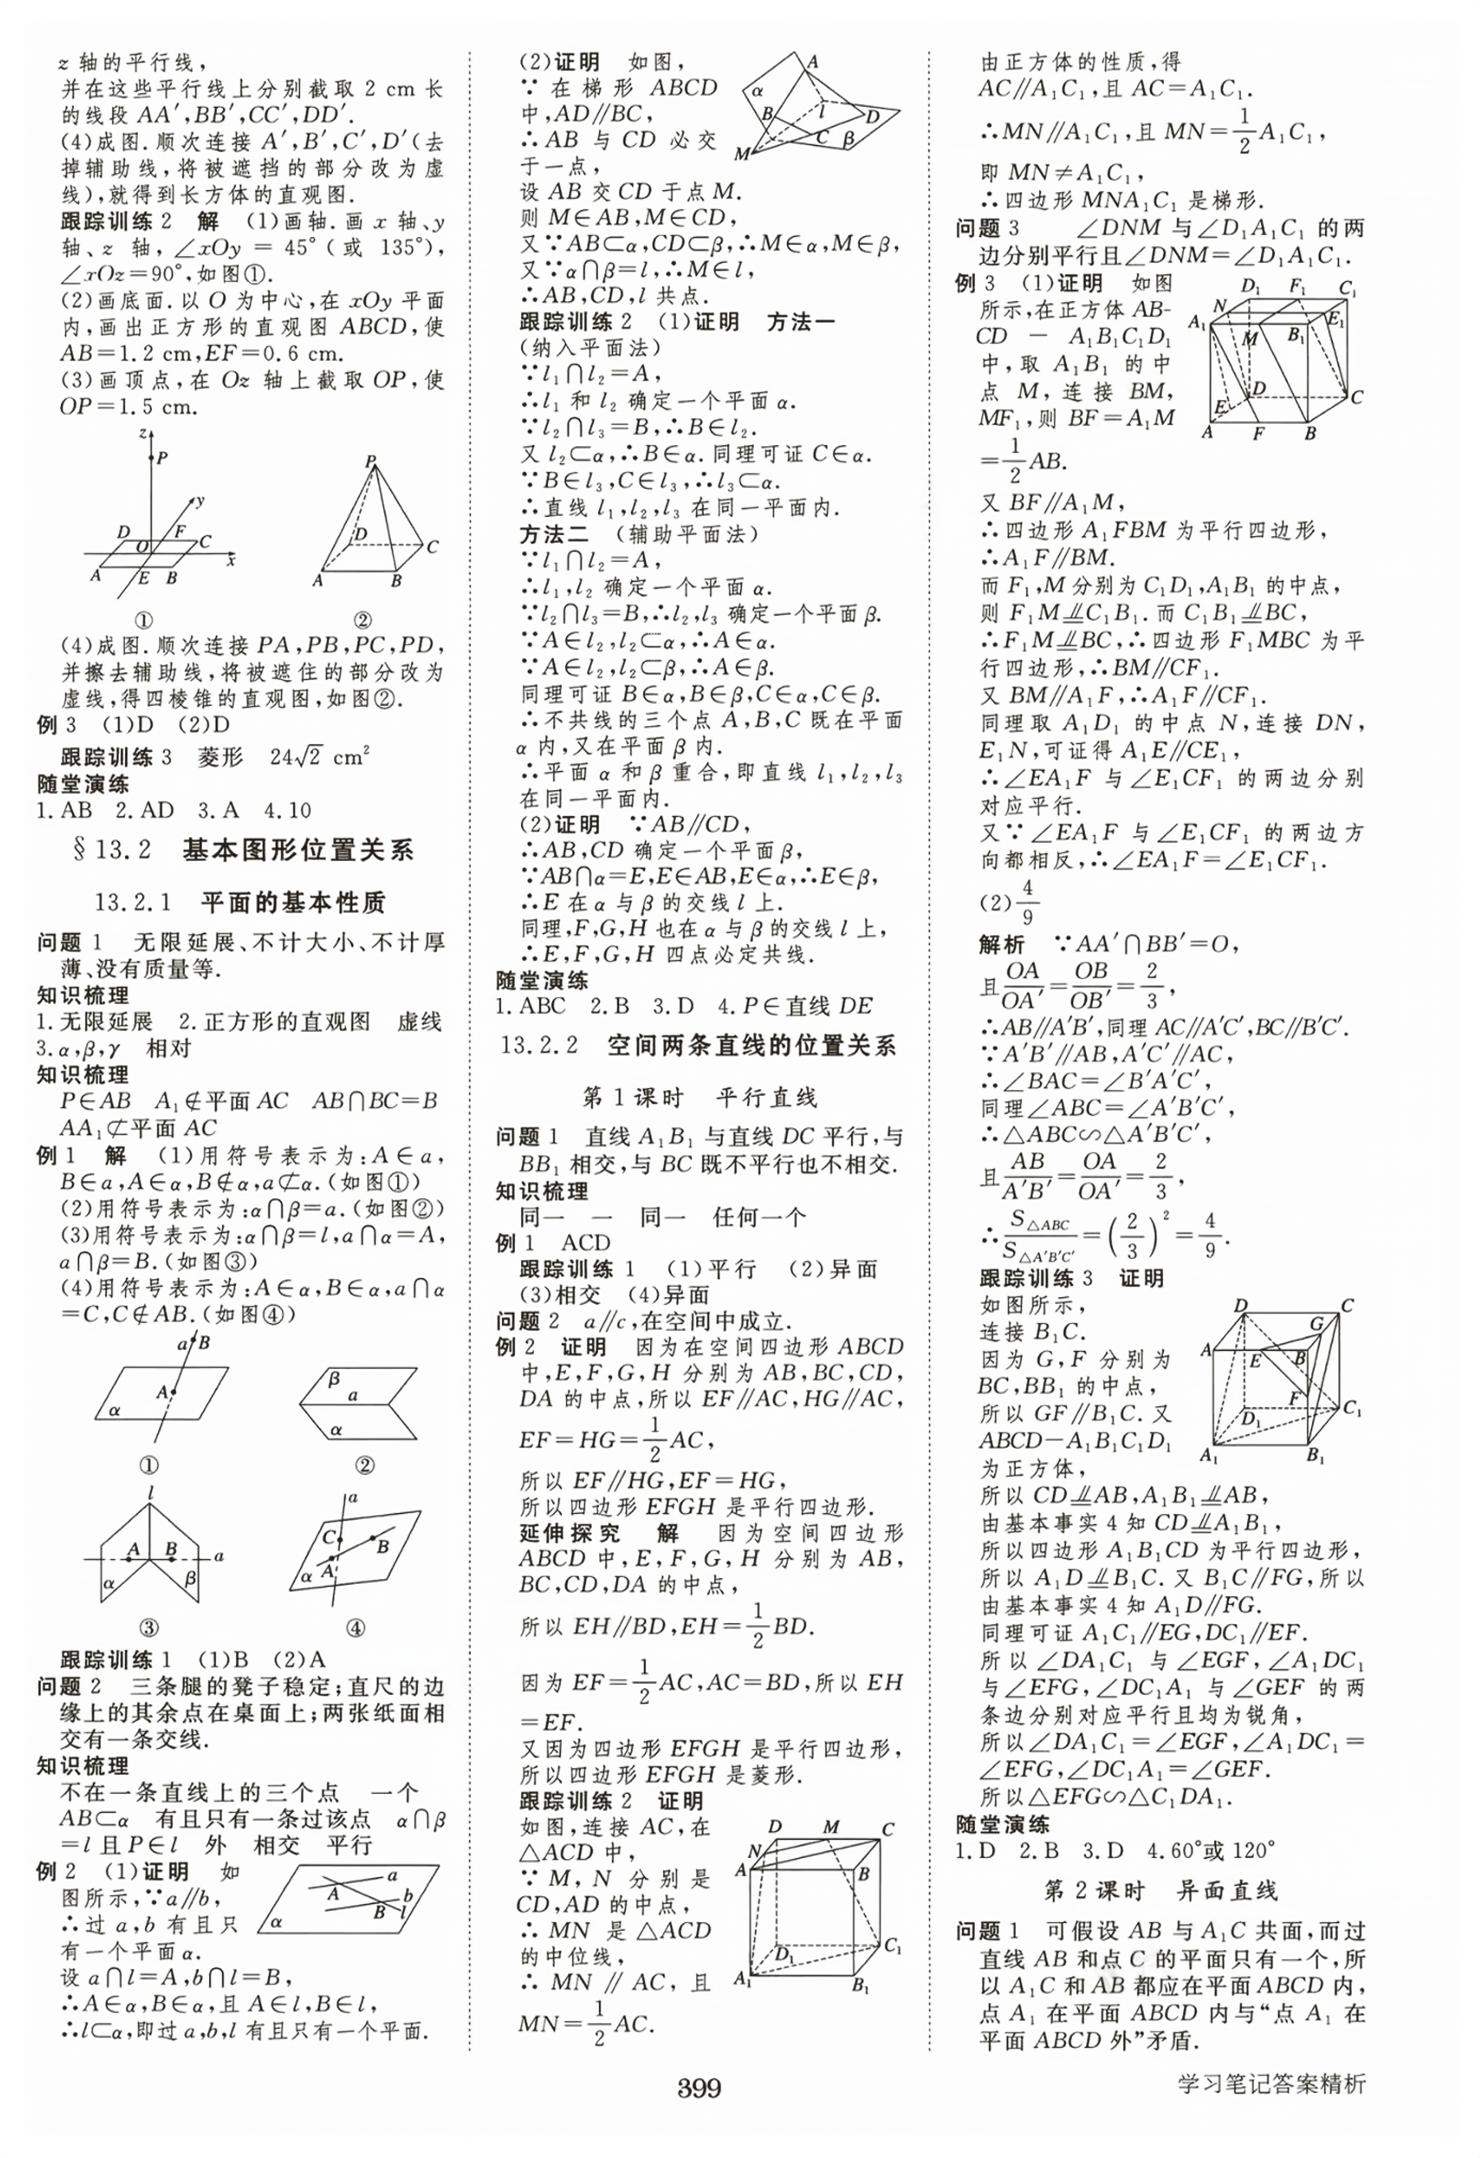 z 轴的平行线,
并在这些平行线上分别截取 2 cm 长
的线段 AA′,BB′,CC′,DD′.
(4)成图.顺次连接 A′,B′,C′,D′(去
掉辅助线,将被遮挡的部分改为虚
线),就得到长方体的直观图.
跟踪训练 2 解 (1)画轴.画 x 轴、y
轴、z 轴,∠xOy = 45°(或 135°),
∠xOz=90°,如图①.
(2)画底面.以 O 为中心,在 xOy 平面
内,画出正方形的直观图 ABCD,使
AB=1.2 cm,EF=0.6 cm.
(3)画顶点,在 Oz 轴上截取 OP,使
OP=1.5 cm.
z
P
y
D F C
O x
A E B
①
P
D C
A B
②
(4)成图.顺次连接 PA,PB,PC,PD,
并擦去辅助线,将被遮住的部分改为
虚线,得四棱锥的直观图,如图②.
例 3 (1)D (2)D
跟踪训练 3 菱形 24√2 cm²
随堂演练
1.AB 2.AD 3.A 4.10
§13.2 基本图形位置关系
13.2.1 平面的基本性质
问题 1 无限延展、不计大小、不计厚
薄、没有质量等.
知识梳理
1.无限延展 2.正方形的直观图 虚线
3.α,β,γ 相对
知识梳理
P∈AB A₁∉平面 AC AB∩BC=B
AA₁⊄平面 AC
例 1 解 (1)用符号表示为:A∈a,
B∈a,A∈α,B∉α,a⊄α.(如图①)
(2)用符号表示为:α∩β=a.(如图②)
(3)用符号表示为:α∩β=l,a∩α=A,
a∩β=B.(如图③)
(4)用符号表示为:A∈α,B∈α,a∩α
=C,C∉AB.(如图④)
a B
A
α
①
β
a
α
②
l
A B a
α β
③
a
C B
α A
④
跟踪训练 1 (1)B (2)A
问题 2 三条腿的凳子稳定;直尺的边
缘上的其余点在桌面上;两张纸面相
交有一条交线.
知识梳理
不在一条直线上的三个点 一个
AB⊂α 有且只有一条过该点 α∩β
=l 且 P∈l 外 相交 平行
例 2 (1)证明 如
图所示,∵a∥b,
∴过 a,b 有且只
有一个平面 α.
a
A b
B l
α
设 a∩l=A,b∩l=B,
∴A∈α,B∈α,且 A∈l,B∈l,
∴l⊂α,即过 a,b,l 有且只有一个平面.
(2)证明 如图,
∵ 在 梯 形 ABCD
中,AD∥BC,
∴AB 与 CD 必交
于一点,
A
α
B l D
C β
M
设 AB 交 CD 于点 M.
则 M∈AB,M∈CD,
又∵AB⊂α,CD⊂β,∴M∈α,M∈β,
又∵α∩β=l,∴M∈l,
∴AB,CD,l 共点.
跟踪训练 2 (1)证明 方法一
(纳入平面法)
∵l₁∩l₂=A,
∴l₁ 和 l₂ 确定一个平面 α.
∵l₂∩l₃=B,∴B∈l₂.
又 l₂⊂α,∴B∈α.同理可证 C∈α.
∵B∈l₃,C∈l₃,∴l₃⊂α.
∴直线 l₁,l₂,l₃ 在同一平面内.
方法二 (辅助平面法)
∵l₁∩l₂=A,
∴l₁,l₂ 确定一个平面 α.
∵l₂∩l₃=B,∴l₂,l₃ 确定一个平面 β.
∵A∈l₂,l₂⊂α,∴A∈α.
∵A∈l₂,l₂⊂β,∴A∈β.
同理可证 B∈α,B∈β,C∈α,C∈β.
∴不共线的三个点 A,B,C 既在平面
α 内,又在平面 β 内.
∴平面 α 和 β 重合,即直线 l₁,l₂,l₃
在同一平面内.
(2)证明 ∵AB∥CD,
∴AB,CD 确定一个平面 β,
∵AB∩α=E,E∈AB,E∈α,∴E∈β,
∴E 在 α 与 β 的交线 l 上.
同理,F,G,H 也在 α 与 β 的交线 l 上,
∴E,F,G,H 四点必定共线.
随堂演练
1.ABC 2.B 3.D 4.P∈直线 DE
13.2.2 空间两条直线的位置关系
第 1 课时 平行直线
问题 1 直线 A₁B₁ 与直线 DC 平行,与
BB₁ 相交,与 BC 既不平行也不相交.
知识梳理
同一 一 同一 任何一个
例 1 ACD
跟踪训练 1 (1)平行 (2)异面
(3)相交 (4)异面
问题 2 a∥c,在空间中成立.
例 2 证明 因为在空间四边形 ABCD
中,E,F,G,H 分别为 AB,BC,CD,
DA 的中点,所以 EF∥AC,HG∥AC,
EF=HG=1/2 AC,
所以 EF∥HG,EF=HG,
所以四边形 EFGH 是平行四边形.
延伸探究 解 因为空间四边形
ABCD 中,E,F,G,H 分别为 AB,
BC,CD,DA 的中点,
所以 EH∥BD,EH=1/2 BD.
因为 EF=1/2 AC,AC=BD,所以 EH
=EF.
又因为四边形 EFGH 是平行四边形,
所以四边形 EFGH 是菱形.
跟踪训练 2 证明
如图,连接 AC,在
△ACD 中,
∵ M,N 分别是
CD,AD 的中点,
∴ MN 是 △ACD
的中位线,
∴ MN ∥ AC, 且
MN=1/2 AC.
D M C
N
A B
D₁ C₁
A₁ B₁
由正方体的性质,得
AC∥A₁C₁,且 AC=A₁C₁.
∴MN∥A₁C₁,且 MN=1/2 A₁C₁,
即 MN≠A₁C₁,
∴四边形 MNA₁C₁ 是梯形.
问题 3 ∠DNM 与∠D₁A₁C₁ 的两
边分别平行且∠DNM=∠D₁A₁C₁.
例 3 (1)证明 如图
所示,在正方体 AB-
CD － A₁B₁C₁D₁
中,取 A₁B₁ 的中
点 M,连接 BM,
MF₁,则 BF=A₁M
=1/2 AB.
D₁ F₁ C₁
N
A₁ M B₁ E₁
D C
E
A F B
又 BF∥A₁M,
∴四边形 A₁FBM 为平行四边形,
∴A₁F∥BM.
而 F₁,M 分别为 C₁D₁,A₁B₁ 的中点,
则 F₁M⫫C₁B₁.而 C₁B₁⫫BC,
∴F₁M⫫BC,∴四边形 F₁MBC 为平
行四边形,∴BM∥CF₁.
又 BM∥A₁F,∴A₁F∥CF₁.
同理取 A₁D₁ 的中点 N,连接 DN,
E₁N,可证得 A₁E∥CE₁,
∴∠EA₁F 与∠E₁CF₁ 的两边分别
对应平行.
又∵∠EA₁F 与∠E₁CF₁ 的两边方
向都相反,∴∠EA₁F=∠E₁CF₁.
(2)4/9
解析 ∵AA′∩BB′=O,
且OA/OA′=OB/OB′=2/3,
∴AB∥A′B′,同理 AC∥A′C′,BC∥B′C′.
∵A′B′∥AB,A′C′∥AC,
∴∠BAC=∠B′A′C′,
同理∠ABC=∠A′B′C′,
∴△ABC∽△A′B′C′,
且AB/A′B′=OA/OA′=2/3,
∴S△ABC/S△A′B′C′=(2/3)²=4/9.
跟踪训练 3 证明
如图所示,
连接 B₁C.
因为 G,F 分别为
BC,BB₁ 的中点,
所以 GF∥B₁C.又
ABCD－A₁B₁C₁D₁
为正方体,
D C
G
A E B
F
D₁ C₁
A₁ B₁
所以 CD⫫AB,A₁B₁⫫AB,
由基本事实 4 知 CD⫫A₁B₁,
所以四边形 A₁B₁CD 为平行四边形,
所以 A₁D⫫B₁C.又 B₁C∥FG,所以
由基本事实 4 知 A₁D∥FG.
同理可证 A₁C₁∥EG,DC₁∥EF.
所以∠DA₁C₁ 与∠EGF,∠A₁DC₁
与∠EFG,∠DC₁A₁ 与∠GEF 的两
条边分别对应平行且均为锐角,
所以∠DA₁C₁=∠EGF,∠A₁DC₁=
∠EFG,∠DC₁A₁=∠GEF.
所以△EFG∽△C₁DA₁.
随堂演练
1.D 2.B 3.D 4.60°或 120°
第 2 课时 异面直线
问题 1 可假设 AB 与 A₁C 共面,而过
直线 AB 和点 C 的平面只有一个,所
以 A₁C 和 AB 都应在平面 ABCD 内,
点 A₁ 在平面 ABCD 内与“点 A₁ 在
平面 ABCD 外”矛盾.
399
学习笔记答案精析